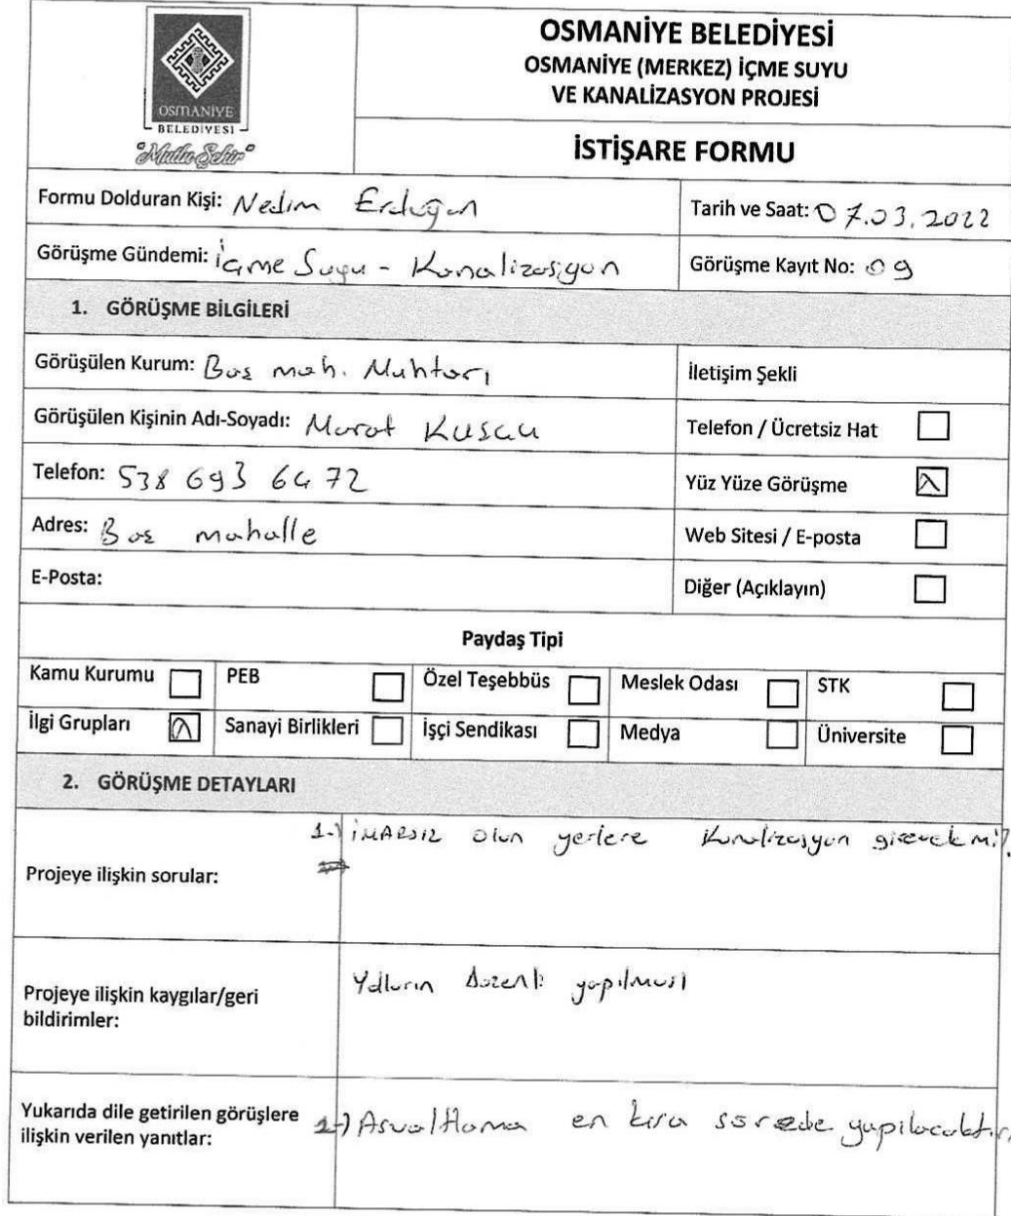 OSMANİYE
BELEDİYESİ
"Mutlu Şehir"
OSMANİYE BELEDİYESİ
OSMANİYE (MERKEZ) İÇME SUYU
VE KANALİZASYON PROJESİ
İSTİŞARE FORMU
Formu Dolduran Kişi: Nedim Erdoğan
Tarih ve Saat: 07.03.2022
Görüşme Gündemi: içme Suyu - Kanalizasyon
Görüşme Kayıt No: 09
1. GÖRÜŞME BİLGİLERİ
Görüşülen Kurum: Baş mah. Muhtarı
İletişim Şekli
Görüşülen Kişinin Adı-Soyadı: Murat Kuscu
Telefon / Ücretsiz Hat
Telefon: 538 693 64 72
Yüz Yüze Görüşme
Adres: Baş mahalle
Web Sitesi / E-posta
E-Posta:
Diğer (Açıklayın)
Paydaş Tipi
Kamu Kurumu PEB Özel Teşebbüs Meslek Odası STK
İlgi Grupları Sanayi Birlikleri İşçi Sendikası Medya Üniversite
2. GÖRÜŞME DETAYLARI
Projeye ilişkin sorular:
1-) iMARSIZ olan yerlere Kanalizasyon girecek mi?
Projeye ilişkin kaygılar/geri
bildirimler:
Yolların Düzenli yapılması
Yukarıda dile getirilen görüşlere
ilişkin verilen yanıtlar:
1-) Asvaltlama en kısa sürede yapılacaktır.